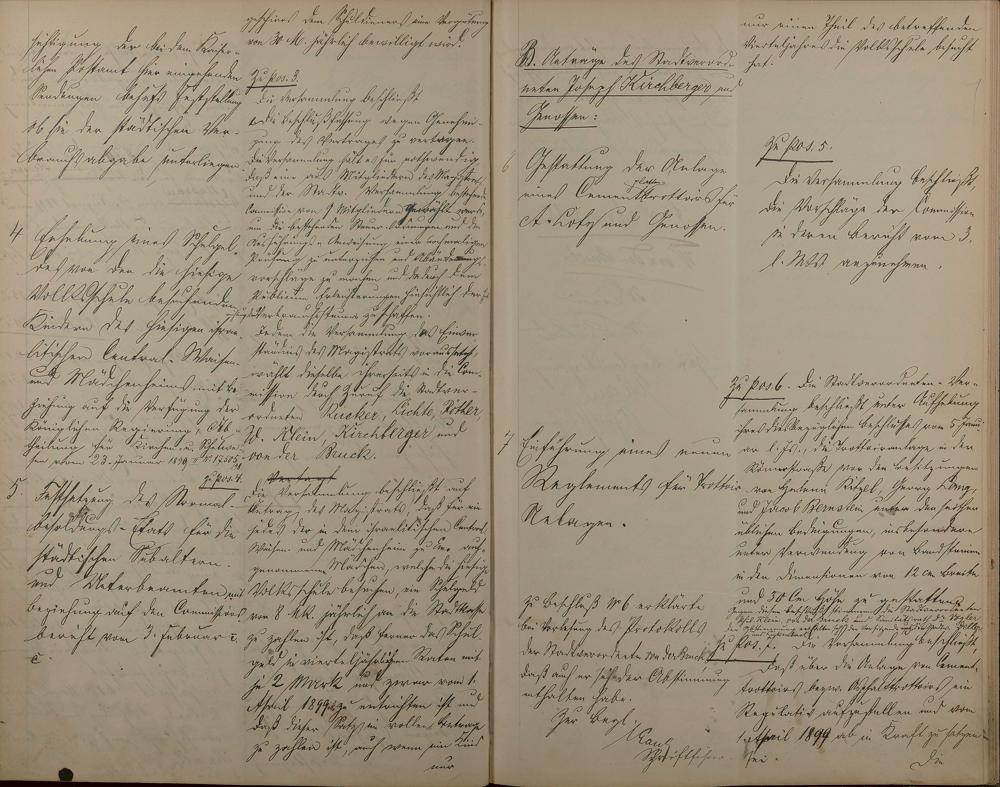 sichtigung der bei dem Kaiser-
lichen Postamt hier eingehenden
Sendungen behufs Feststellung
ob sie der städtischen Ver-
brauchsabgabe unterliegen
4 Erhebung eines Schulgel-
des von den die hiesige
Volksschule besuchenden
Kindern des hiesigen israe-
litischen Central-Waisen-
und Mädchenheims mit Be-
ziehung auf die Verfügung der
Königlichen Regierung, Ab-
theilung für Kirchen- u. Schulwe-
sen vom 23. Januar 1899
5. Festsetzung des Normal-
besoldungs-Etats für die
städtischen Subaltern-
und Unterbeamten mit
Beziehung auf den Commissions-
bericht vom 3. Februar c.
geschirrs dem Schuldieners eine Vergütung
von 30 M. jährlich bewilligt wird.
Zu pos. 3.
Die Versammlung beschließt
die Beschlußfassung wegen Genehmi-
gung des Vertrages zu vertagen.
Die Versammlung hält es für nothwendig,
daß eine aus Mitgliedern des Magistrats
und der Stadtv. Versammlung bestehende
Commission von 9 Mitgliedern gewählt werde,
um die bestehenden Steuer-Ordnungen und die
zu machen und dadurch dem
Publicum Erleichterungen hinsichtlich der
zu schaffen.
Indem die Versammlung das Einver-
ständnis des Magistrats voraussetzt,
wählt dieselbe ihrerseits in die Com-
mission durch Zuruf die Stadtver-
ordneten Rucker, Lichte, Röttler
W. Klein, Kirchberger und
von der Bruck.
zu pos. 4. Vertagt
Die Versammlung beschließt auf
Antrag des Magistrats, daß für ein
jedes der in dem israelitischen Central-
Waisen- und Mädchenheim zu Ems auf-
genommenen Mädchen, welche die hiesige
Volksschule besuchen, ein Schulgeld
von 8 Mk. jährlich an die Stadtkasse
zu zahlen ist, daß ferner das Schul-
geld in vierteljährlichen Raten mit
je 2 Mark und zwar vom 1.
April 1899 zu entrichten ist und
daß dieser Satz in vollem Betrage
zu zahlen ist, auch wenn ein Kind
nur
B. Anträge des Stadtverord-
neten Joseph Kirchberger und
Genossen:
6 Gestattung der Anlage
eines Cementplattentrottoirs für
A. Lotz und Genossen.
7 Einführung eines neuen
Reglements für Trottoir
Anlagen.
Zu Beschluß No 6 erklärte
bei Vorlesung des Protokolls
der Stadtverordnete von der Bruck
daß auch er sich der Abstimmung
enthalten habe.
Zur Begl.
Schriftführer
nur einen Theil des betreffenden
Vierteljahres die Volksschule besucht
hat.
Zu pos. 5.
Die Versammlung beschließt,
die Vorschläge der Commission
in deren Bericht vom 3.
l. Mts anzunehmen.
Zu pos 6. Die Stadtverordneten-Ver-
sammlung beschließt unter Aufhebung
ihres diesbezüglichen Beschlusses vom 5 Juni
v. Js., die Trottoiranlage in der
Römerstraße vor den Besitzungen
von Georg Lang,
und Jacob Bernstein unter den sonst
üblichen Bedingungen, insbesondere
unter Verwendung von Bandsteinen
in den Dimensionen von 12 cm Breite
und 30 Cm Höhe zu gestatten.
zu pos. 7. Die Versammlung beschließt,
daß über die Anlage von Cement-
trottoirs bezw. Asphalttrottoirs ein
Regulativ aufzustellen und vom
1 April 1899 ab in Kraft zu setzen
sei.
Die